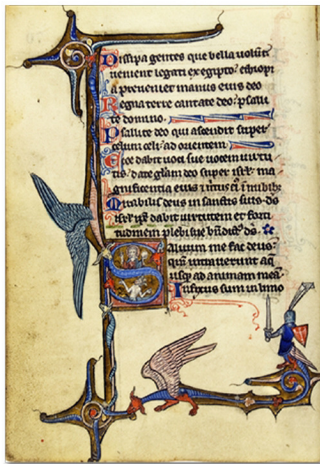 Dissipa gentes que bella uolunt
uenient legati ex egipto: ethiopi
a preueniet manus eius deo
Regna terre cantate deo: psalli
te domino.
Psallite deo qui ascendit super
celum celi: ad orientem.
Ecce dabit uoci sue uocem uirtu
tis: date gliam deo super isrl: ma
gnificentia eius uirtus in nubibz
Mirabilis deus in sanctis suis: ds
isrl ipse dabit uirtutem et forti
tudinem plebi sue bndict ds.
Saluum me fac deus:
qm intrauerunt aq
usq ad animam mea
Infixus sum in limo